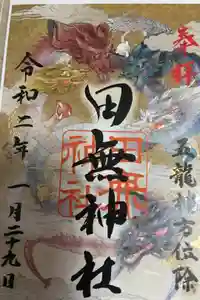 奉拝
五龍神方位除
田無神社
田無神社
令和二年 一月二十九日